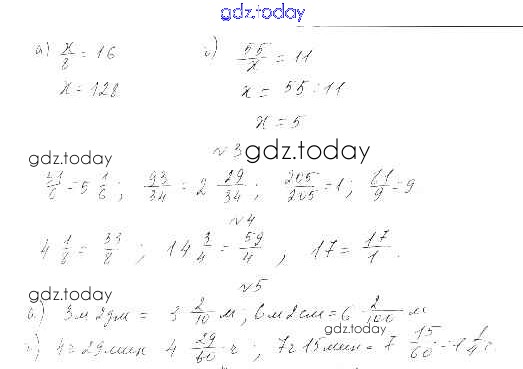 gdz.today
а) x/8 = 16 б) 55/x = 11
x = 128 x = 55 : 11
x = 5
№3 gdz.today
gdz.today
/6 = 5 1/6 ; 93/34 = 2 29/34 ; 205/205 = 1 ; 81/9 = 9
№4
4 1/8 = 33/8 ; 14 3/4 = 59/4 , 17 = 17/1 .
№5
gdz.today
3м 2дм = 3 2/10 м ; 6м 2см = 6 2/100 м
gdz.today
4ч 29мин 4 29/60 ч ; 7ч 15мин = 7 15/60 = 1/4